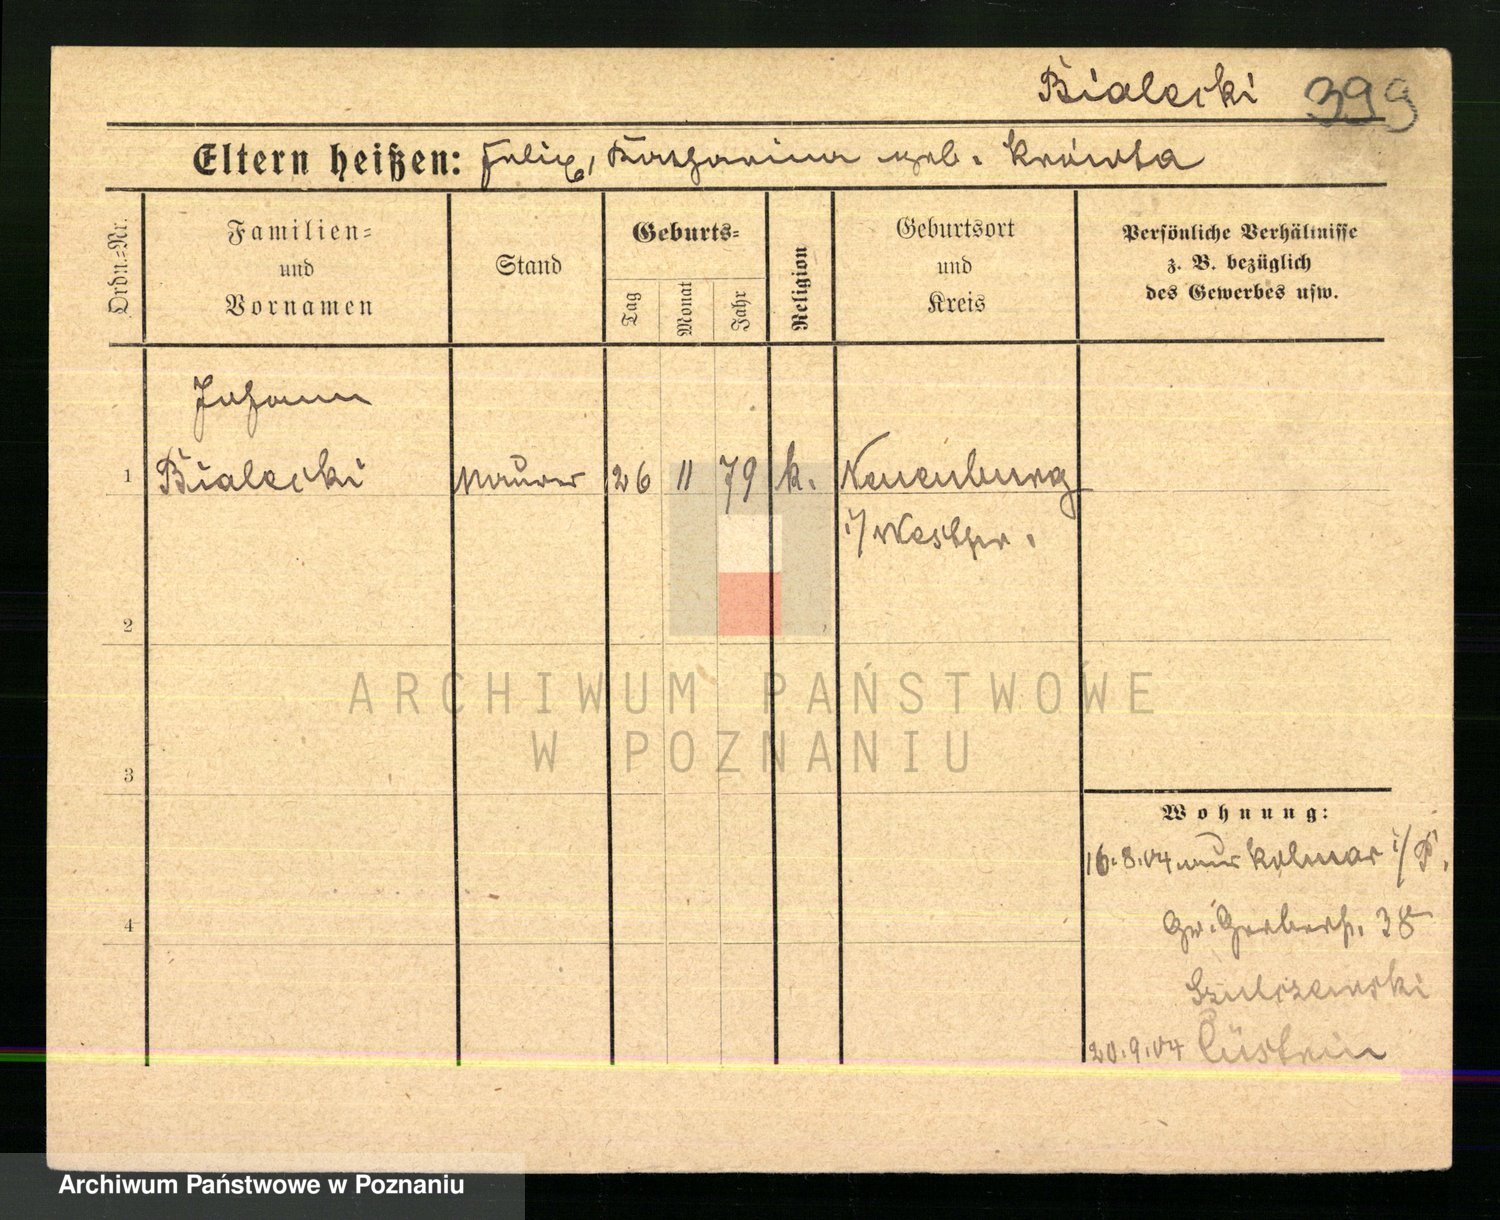 Bialecki 399
Eltern heißen: Felix, Katharina geb. Krówka
Ordn.-Nr.
Familien-
und
Vornamen
Stand
Geburts-
Tag
Monat
Jahr
Religion
Geburtsort
und
Kreis
Persönliche Verhältnisse
z. B. bezüglich
des Gewerbes usw.
Johann
1 Bialecki Maurer 26 11 79 k. Neuenburg
i/ Westpr.
2
ARCHIWUM PAŃSTWOWE
W POZNANIU
3
Wohnung:
16.8.04 aus Kolmar i/P.
4
Gr. Gerberst. 38
Szulczewski
20.9.04 Cüstrin
Archiwum Państwowe w Poznaniu